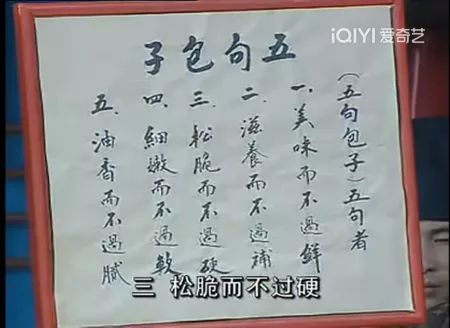 iQIYI 爱奇艺
五句包子
（五句包子）五句者
一、美味而不過鮮
二、滋養而不過補
三、松脆而不過硬
四、細嫩而不過軟
五、油香而不過膩
三 松脆而不过硬